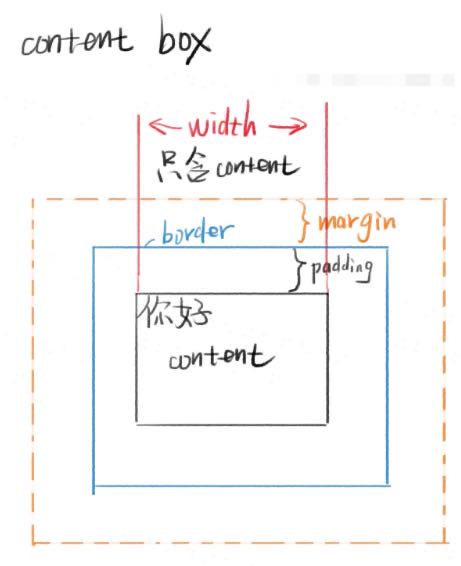 content box
width
只含content
margin
border
padding
你好
content